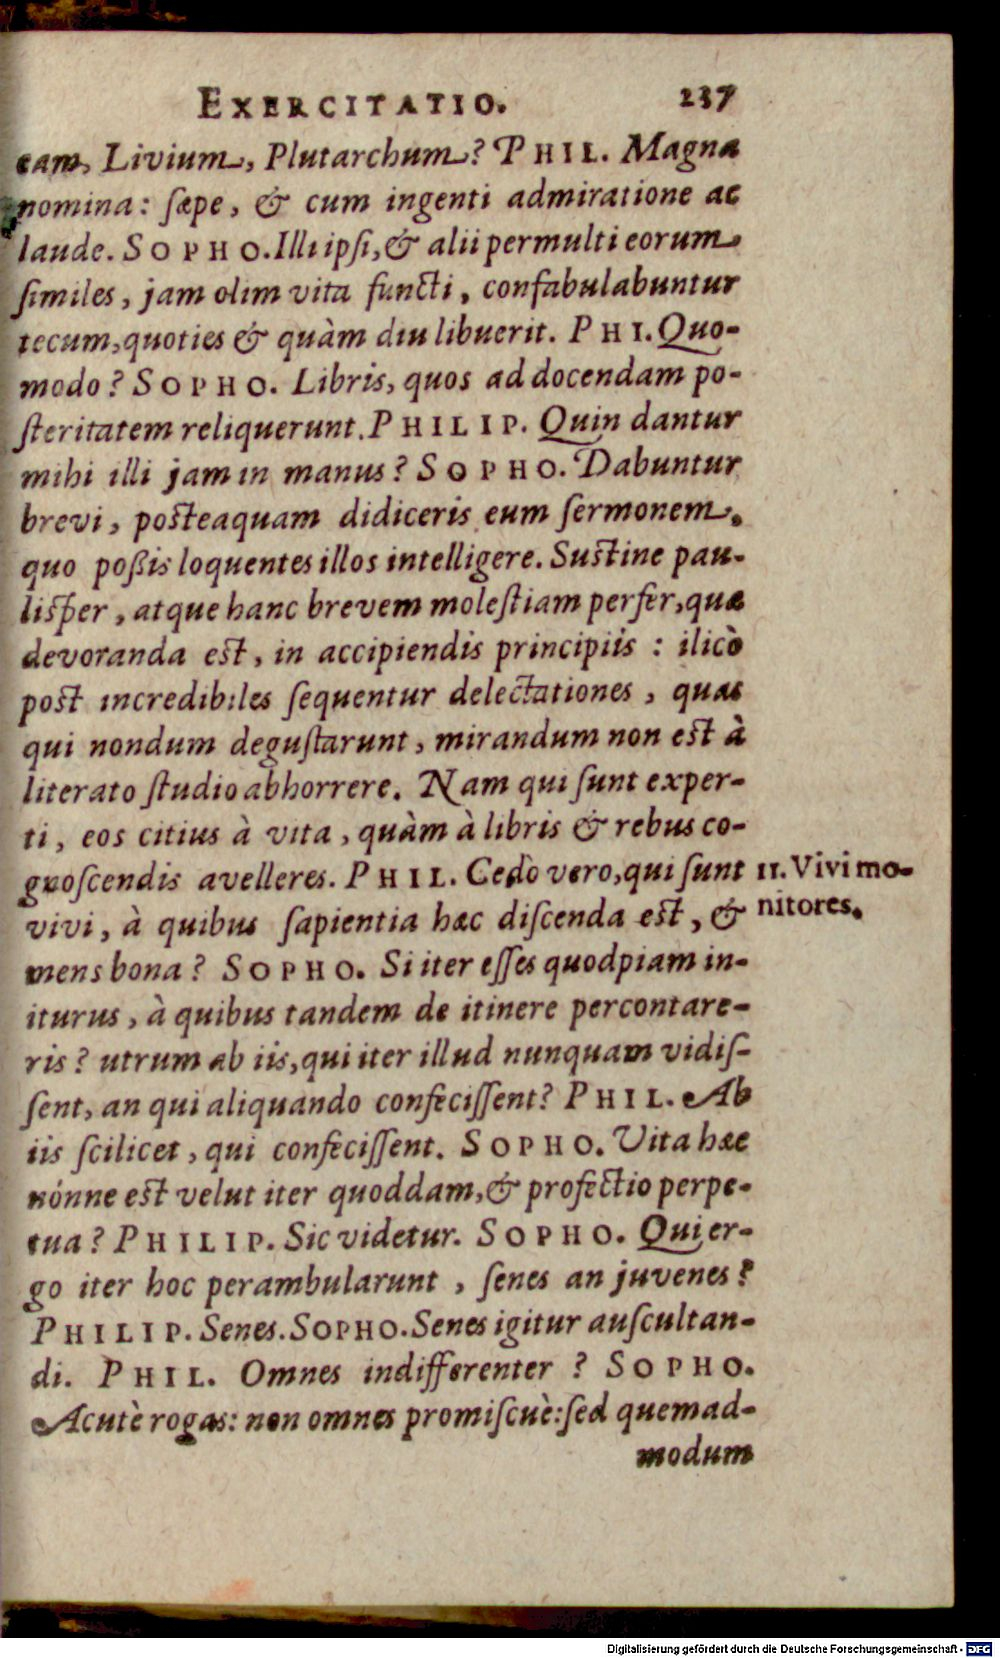 EXERCITATIO. 237
cam, Livium, Plutarchum? PHIL. Magna
nomina: sæpe, & cum ingenti admiratione ac
laude. SOPHO. Illi ipsi, & alii permulti eorum
similes, jam olim vita functi, confabulabuntur
tecum, quoties & quàm diu libuerit. PHI. Quo-
modo? SOPHO. Libris, quos ad docendam po-
steritatem reliquerunt. PHILIP. Quin dantur
mihi illi jam in manus? SOPHO. Dabuntur
brevi, posteaquam didiceris eum sermonem,
quo poßis loquentes illos intelligere. Sustine pau-
lisper, atque hanc brevem molestiam perfer, quæ
devoranda est, in accipiendis principiis: ilicò
post incredibiles sequentur delectationes, quas
qui nondum degustarunt, mirandum non est à
literato studio abhorrere. Nam qui sunt exper-
ti, eos citius à vita, quàm à libris & rebus co-
gnoscendis avelleres. PHIL. Cedò vero, qui sunt
vivi, à quibus sapientia hæc discenda est, &
mens bona? SOPHO. Si iter esses quodpiam in-
iturus, à quibus tandem de itinere percontare-
ris? utrum ab iis, qui iter illud nunquam vidis-
sent, an qui aliquando confecissent? PHIL. Ab
iis scilicet, qui confecissent. SOPHO. Vita hæc
nónne est velut iter quoddam, & profectio perpe-
tua? PHILIP. Sic videtur. SOPHO. Qui er-
go iter hoc perambularunt, senes an juvenes?
PHILIP. Senes. SOPHO. Senes igitur auscultan-
di. PHIL. Omnes indifferenter? SOPHO.
Acutè rogas: non omnes promiscuè: sed quemad-
modum
11. Vivi mo-
nitores.
Digitalisierung gefördert durch die Deutsche Forschungsgemeinschaft - DFG